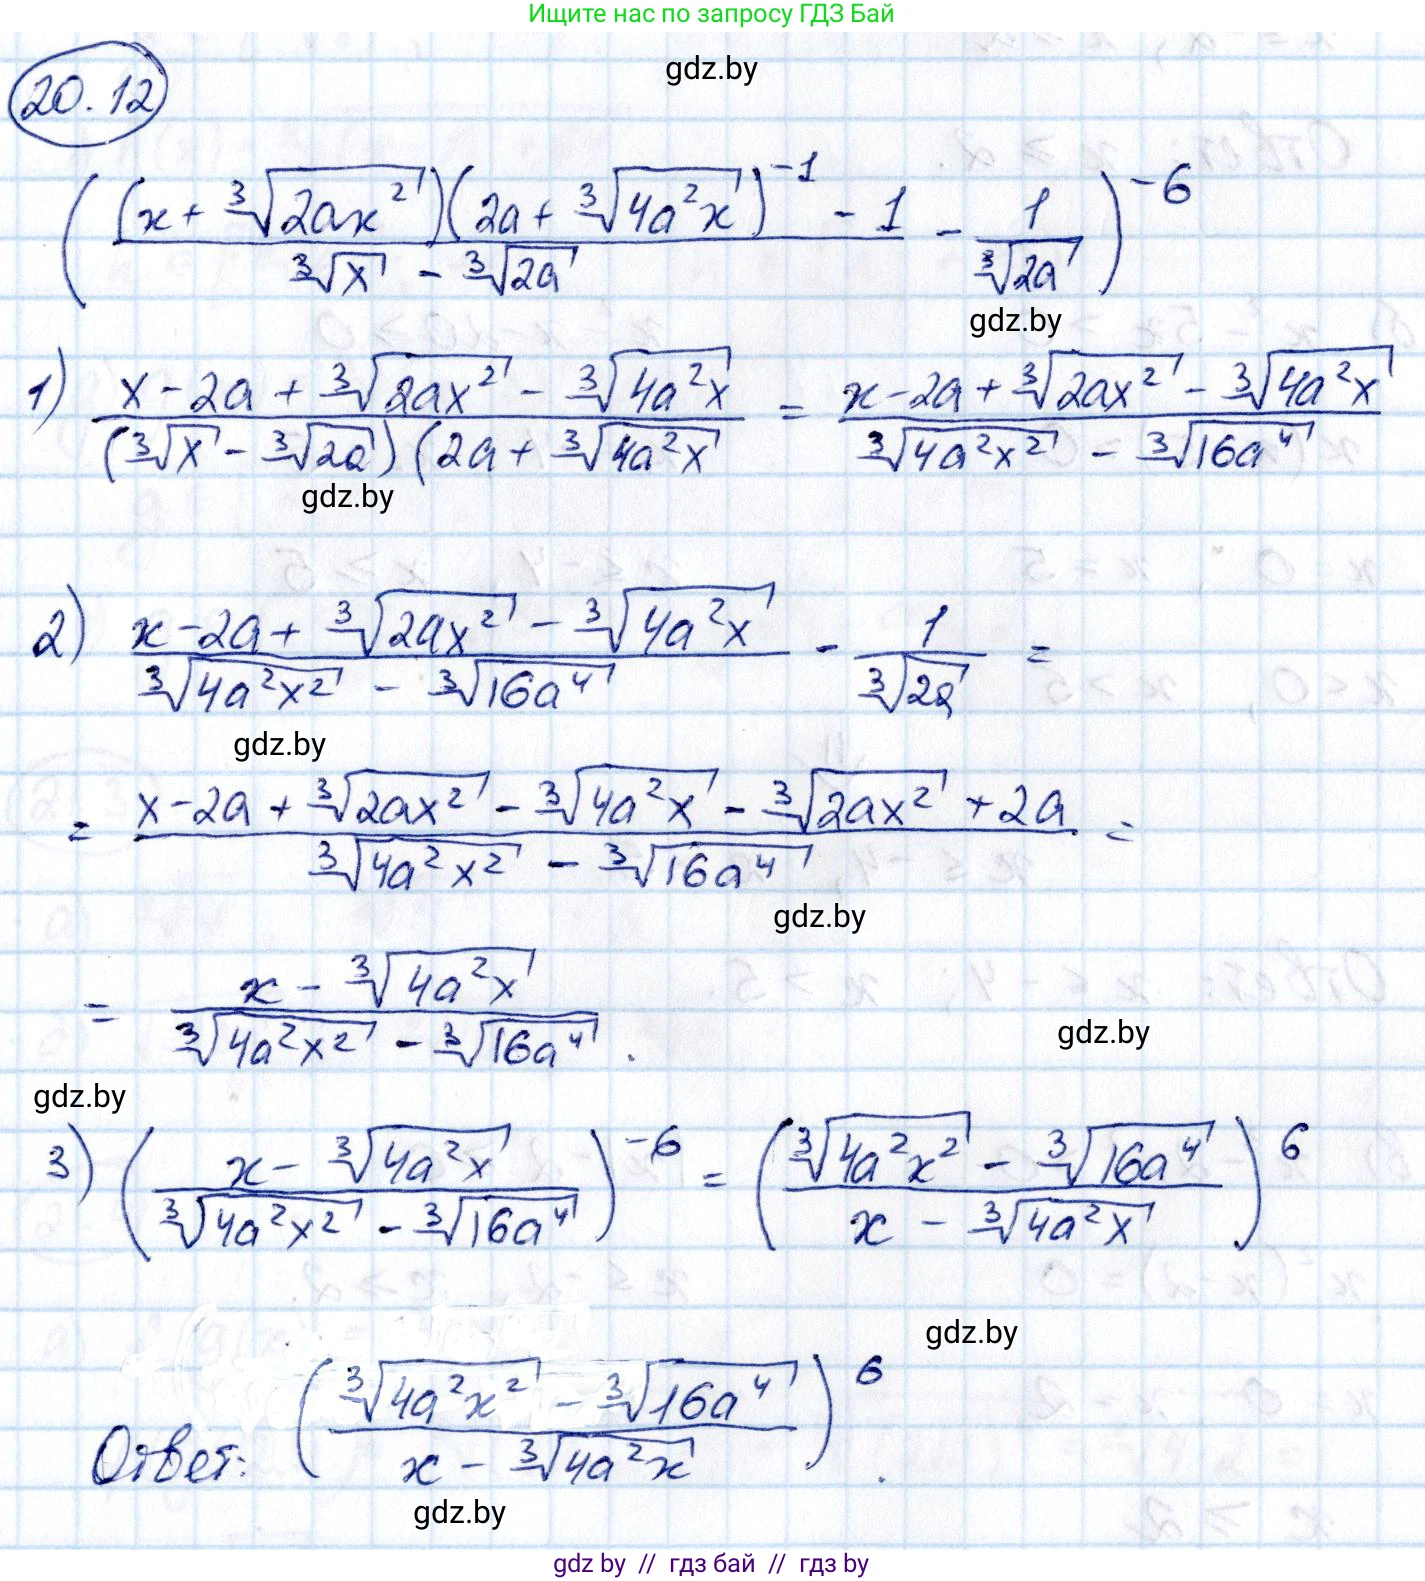 Ищите нас по запросу ГДЗ Бай
gdz.by
20.12
(((x + ∛(2ax²))(2a + ∛(4a²x))⁻¹ - 1)/(∛x - ∛(2a)) - 1/∛(2a))⁻⁶
gdz.by
1) (x - 2a + ∛(2ax²) - ∛(4a²x))/((∛x - ∛(2a))(2a + ∛(4a²x)) = (x - 2a + ∛(2ax²) - ∛(4a²x))/(∛(4a²x²) - ∛(16a⁴))
gdz.by
2) (x - 2a + ∛(2ax²) - ∛(4a²x))/(∛(4a²x²) - ∛(16a⁴)) - 1/∛(2a) =
gdz.by
= (x - 2a + ∛(2ax²) - ∛(4a²x) - ∛(2ax²) + 2a)/(∛(4a²x²) - ∛(16a⁴)) =
gdz.by
= (x - ∛(4a²x))/(∛(4a²x²) - ∛(16a⁴)).
gdz.by
gdz.by
3) ((x - ∛(4a²x))/(∛(4a²x²) - ∛(16a⁴)))⁻⁶ = ((∛(4a²x²) - ∛(16a⁴))/(x - ∛(4a²x)))⁶
gdz.by
Ответ: ((∛(4a²x²) - ∛(16a⁴))/(x - ∛(4a²x)))⁶.
gdz.by
gdz by // гдз бай // гдз by